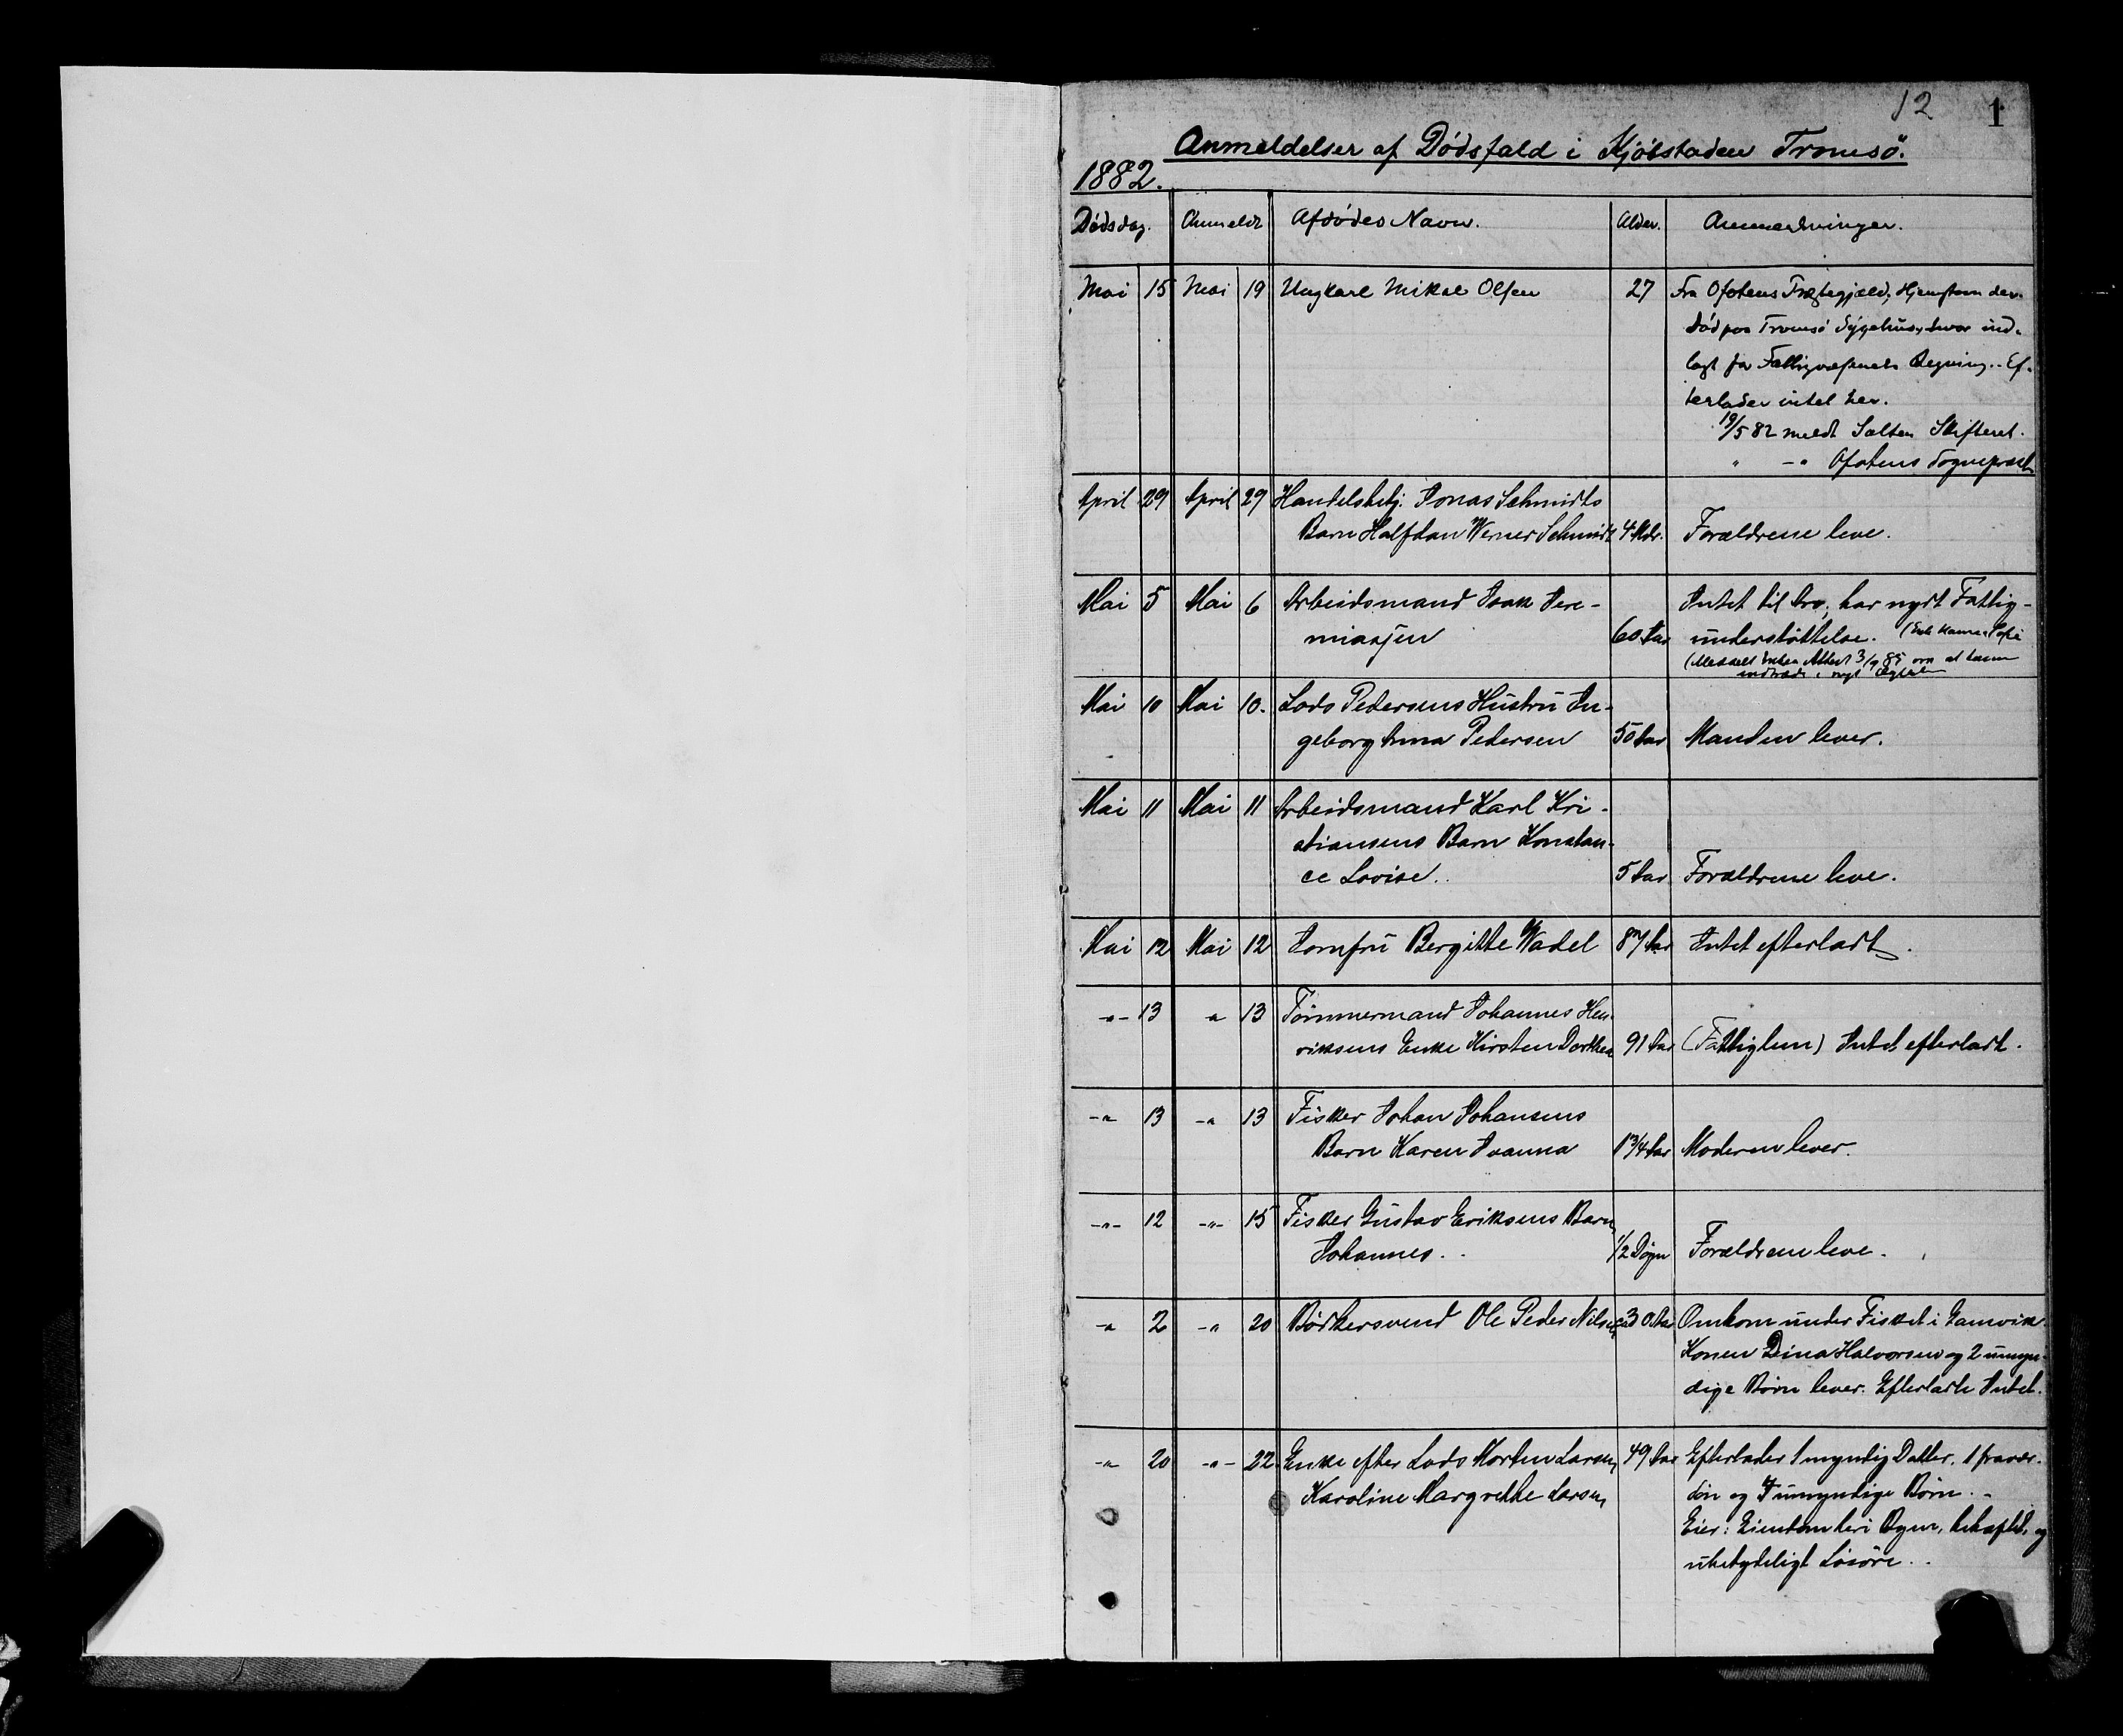 12 1
Anmeldelser af Dödsfald i Kjöbstaden Tromsö.
1882.
Dödsdag. Anmeldt Afdödes Navn. Alder. Anmærkninger.
Mai 15 Mai 19 Ungkarl Mikal Olsen 27 Fra Ofotens Præstegjæld, Hjemstavn der.
Död paa Tromsö Sygehus, hvor ind-
lagt for Fattigvæsenets Regning. Ef-
terlader intet her.
19/5 82 meldt Salten Skifteret.
" -"- Ofotens Sognepræst
April 29 April 29 Handelsbetj. Jonas Schmidts
Barn Halfdan Werner Schmidt 4 Mdr. Forældrene leve.
Mai 5 Mai 6 Arbeidsmand Isak Jere- Intet til Arv, har nydt Fattig-
miasen 60 Aar understöttelse. (Enke
(Meddelt Enken Attest 3/9 85 om at kunne
indtræde i nyt Ægteskab
Mai 10 Mai 10. Lods Pedersens Hustru In-
geborg Anna Pedersen 50 Aar Manden lever.
Mai 11 Mai 11 Arbeidsmand Karl Kri-
stiansens Barn Konstan-
ce Lovise. 5 Aar Forældrene leve.
Mai 12 Mai 12 Jomfru Bergitte Wadel 87 Aar Intet efterladt.
-"- 13 -"- 13 Tömmermand Johannes Hen-
riksens Enke Kirsten Dorthea 91 Aar (Fattiglem) Intet efterladt.
-"- 13 -"- 13 Fisker Johan Johansens
Barn Karen Joanna 1 3/4 Aar Moderen lever.
-"- 12 -"- 15 Fisker Gustav Eriksens Barn
Johannes. 1/2 Dögn Forældrene leve.
-"- 2 -"- 20 Bödkersvend Ole Peder Nilsen 30 Aar Omkom under Fisket i Gamvik.
Konen Dina Halvorsen og 2 umyn-
dige Börn lever. Efterladt Intet.
-"- 20 -"- 22. Enke efter Lods Morten Larsen, 49 Aar Efterlader 1 myndig Datter, 1 fravær.
Karoline Margrethe Larsen Sön og 7 umyndige Börn.
Eier: Eiendom her i Byen, behæftet, og
ubetydeligt Lösöre.